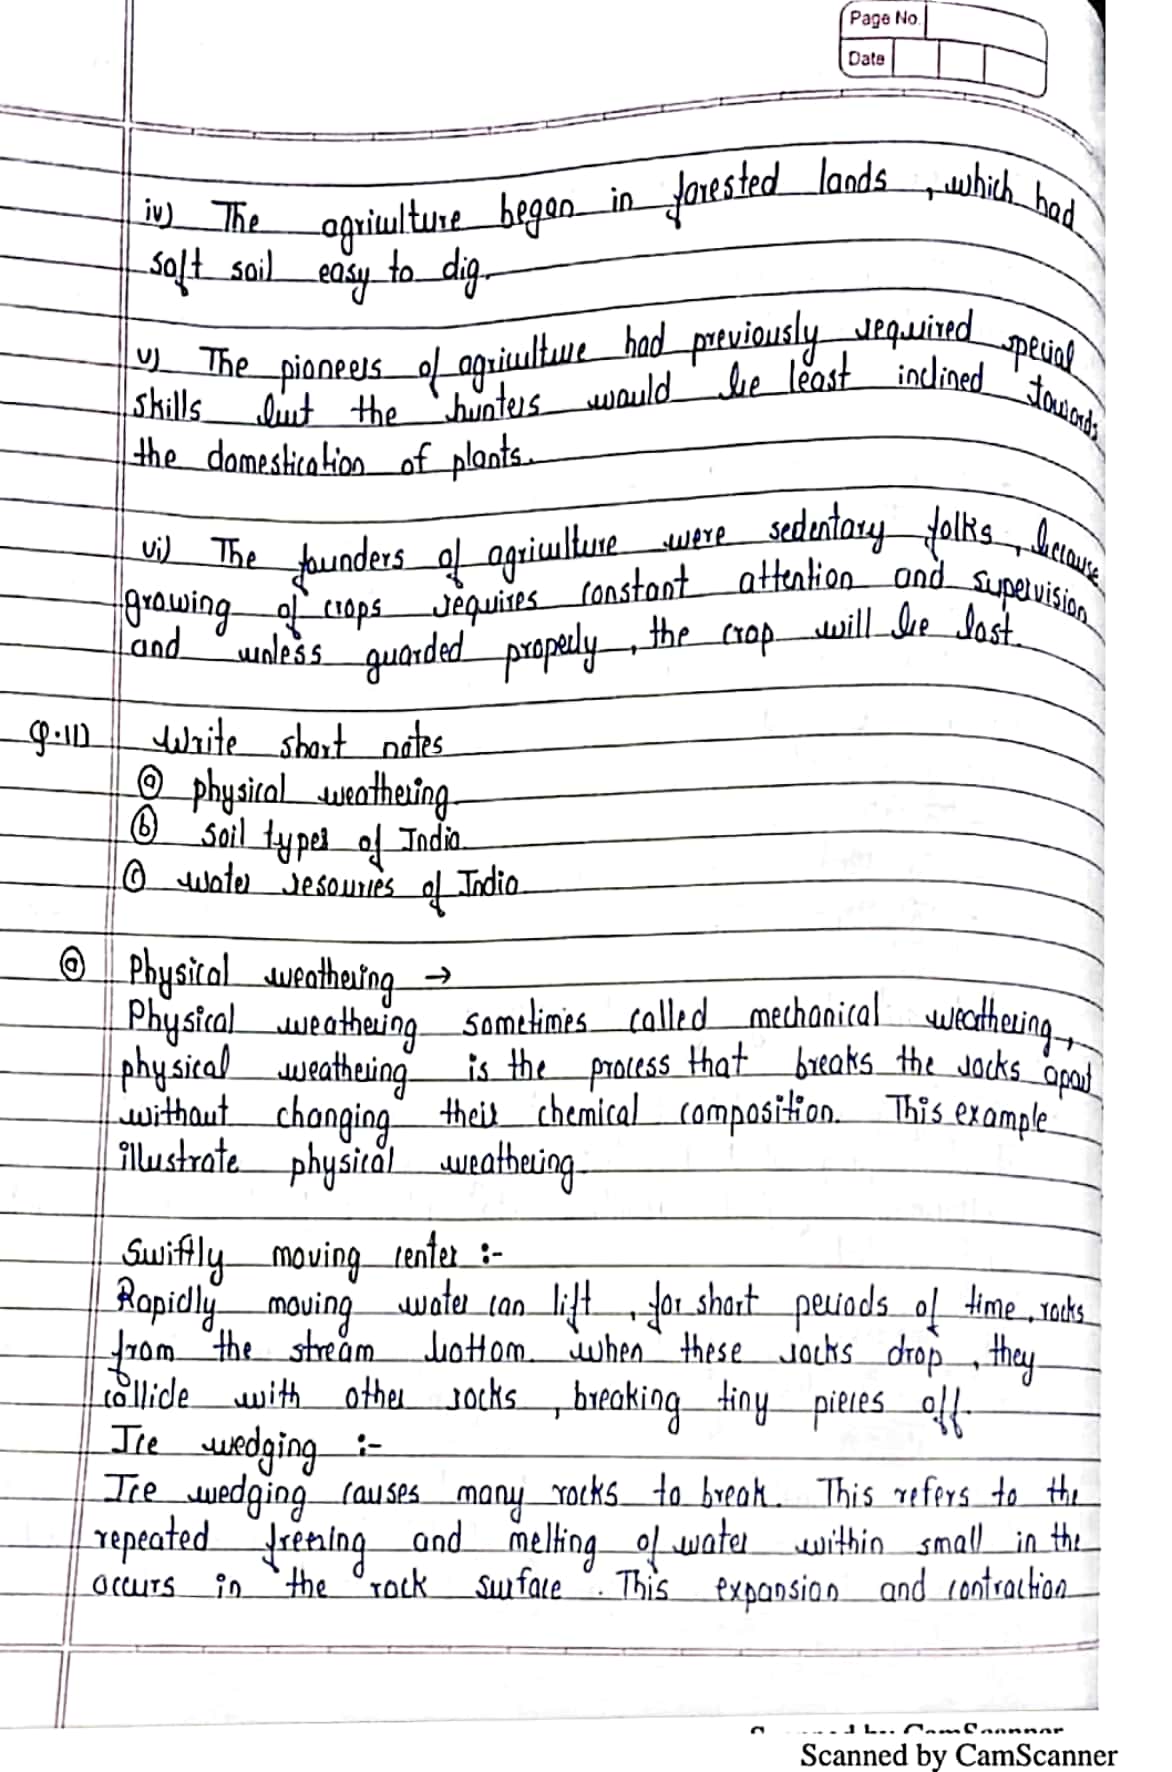 Page No.
Date
iv) The agriculture began in forested lands , which had
soft soil easy to dig.
v) The pioneers of agriculture had previously required special
skills but the hunters would be least inclined towards
the domestication of plants.
vi) The founders of agriculture were sedentary folks , because
growing of crops requires constant attention and supervision
and unless guarded properly , the crop will be lost.
Q.11) Write short notes
(a) physical weathering
(b) soil types of India
(c) water resources of India
(a) Physical weathering →
Physical weathering sometimes called mechanical weathering,
physical weathering is the process that breaks the rocks apart
without changing their chemical composition. This example
illustrate physical weathering.
Swiftly moving center :-
Rapidly moving water can lift , for short periods of time, rocks
from the stream bottom. when these rocks drop , they
collide with other rocks , breaking tiny pieces off.
Ice wedging :-
Ice wedging causes many rocks to break. This refers to the
repeated freezing and melting of water within small in the
occurs in the rock surface . This expansion and contraction
Scanned by CamScanner
Scanned by CamScanner